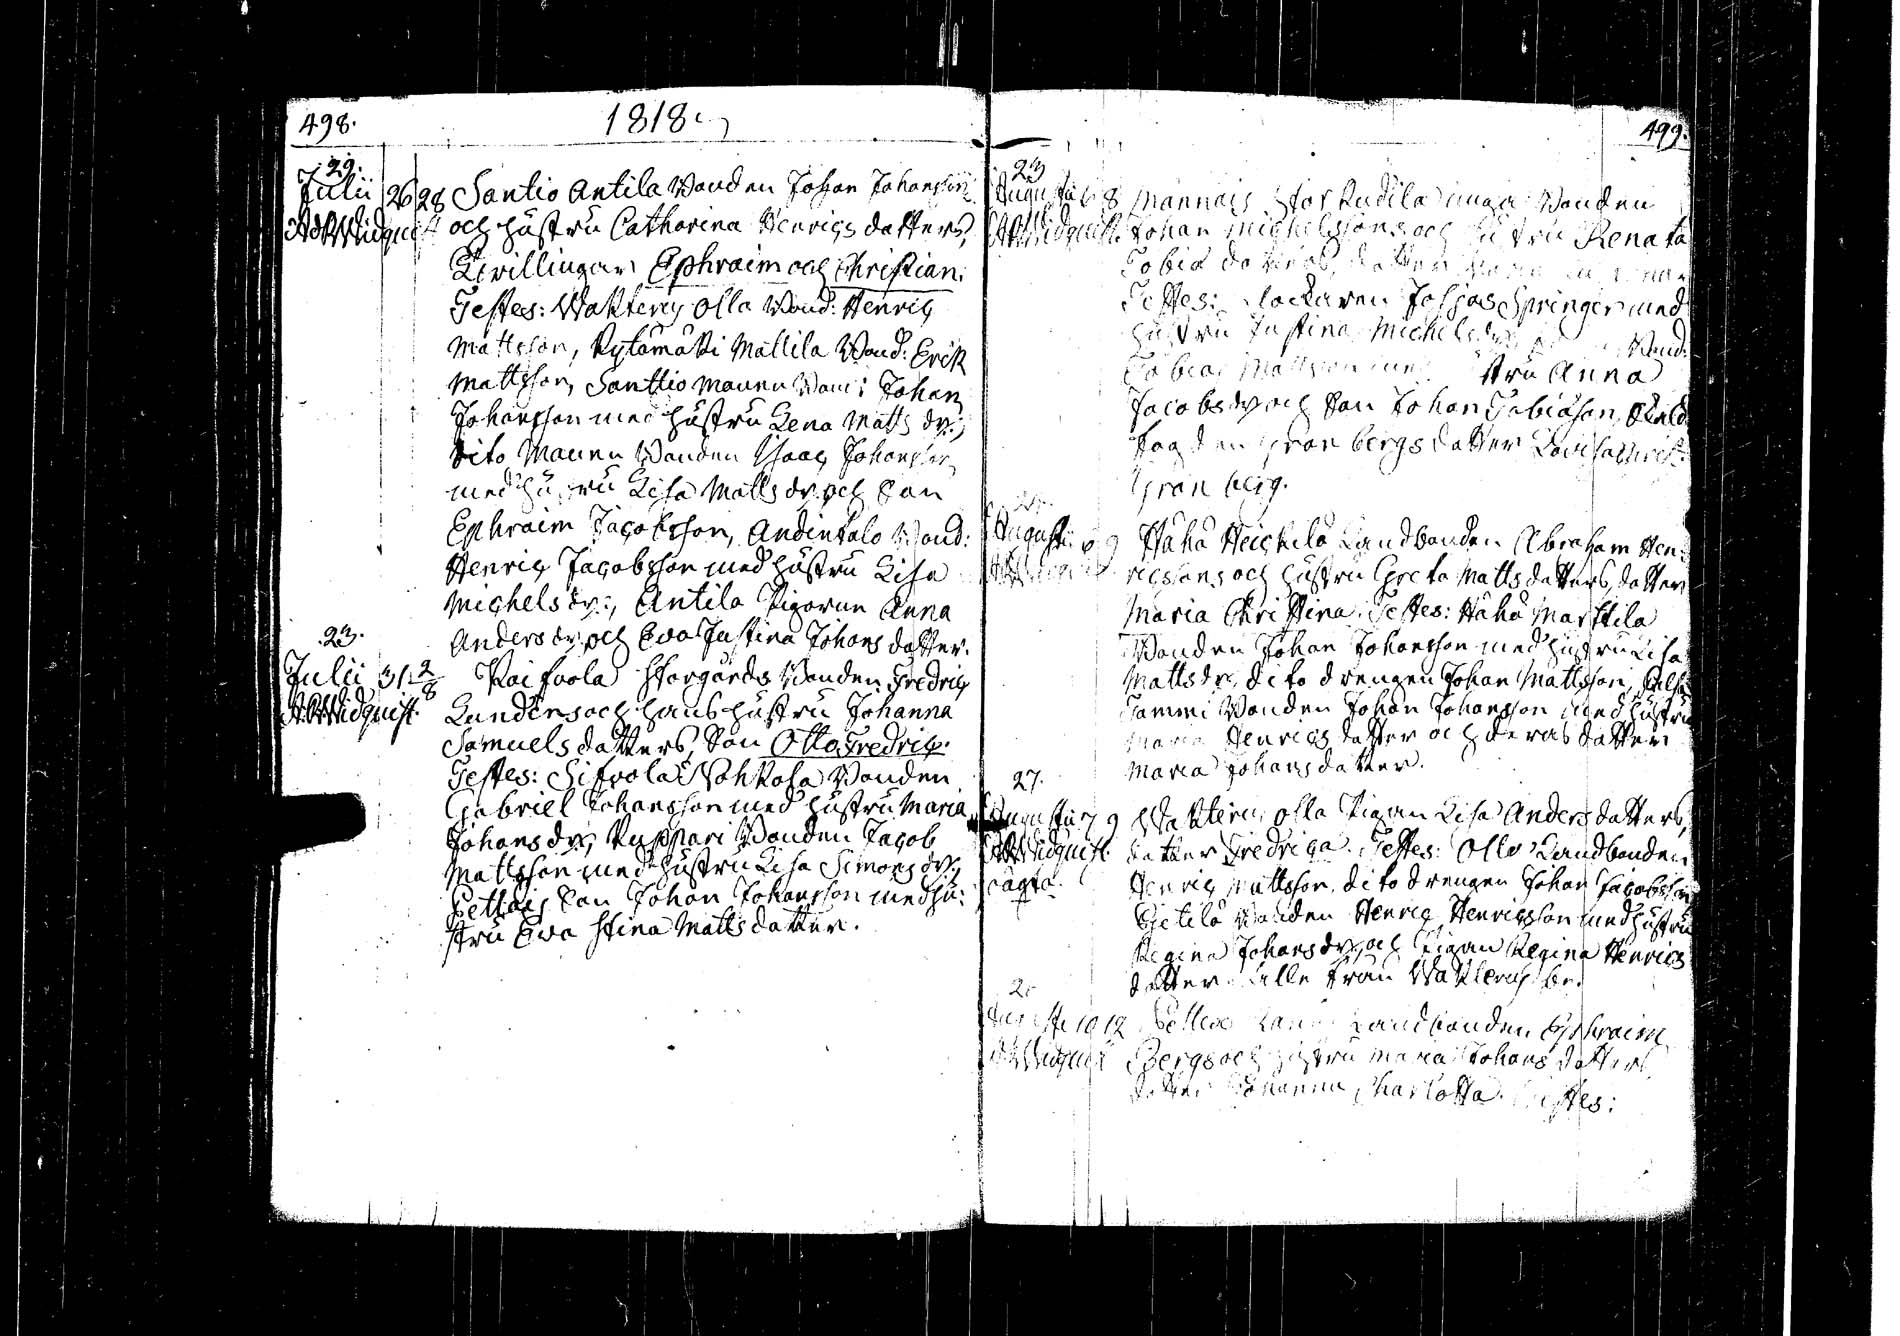 498.
1818
29.
Julii 26 28 Santio Antila Bonden Johan Johanssons
A. Widquist och hustru Catharina Henrics datters,
Tvillingar Ephraim och Christian.
Testes: Wakkeri Olla Bond: Henric
Mattsson, Kylämäki Mallila Bond: Erik
Mattsson, Santtio Maunu Bond: Johan
Johansson med hustru Lena Matts dr.,
dito Maunu Bonden Isaac Johansson
med hustru Lisa Matts dr. och Son
Ephraim Jacobsson, Andintalo Bond:
Henric Jacobsson med hustru Lisa
Michels dr., Antila Pigorne Anna
Anders dr. och Eva Justina Johans datter.
23.
Julii 31. 2/8 Kaifvola Storgårds Bonden Fredric
A. Widquist. Lundens och hans hustru Johanna
Samuels datters, Son Otto Fredric.
Testes: Sifvola Nohkola Bonden
Gabriel Johansson med hustru Maria
Johans dr., Ruppari Bonden Jacob
Mattsson med hustru Lisa Simons dr.,
Son Johan Johansson med hu:
stru Eva Stina Matts datter.
499.
23
Augusti 6 8 Mannais Storkudila unga Bonden
A. Widquist. Johan Michelssons och hustru Renata
Tobiæ datters, datter
Testes: Klockaren Josias Springer med
hustru Justina Michels dr. Bond:
Tobias Mattsson med hustru Anna
Jacobs dr. och Son Johan Tobiason,
Granbergs datter Lovisa
Granberg.
Augusti 6 9 Haha Heickilä Landbonden Abraham Hen:
ricssons och hustru Greta Matts datters, datter
Maria Christina. Testes: Haha Marttila
Bonden Johan Johansson med hustru Lisa
Matts dr., dito drengen Johan Mattsson,
Tammi Bonden Johan Johansson med hustru
Maria Henrics datter och deras datter
Maria Johans datter.
27.
Augusti 7 9 Wakkeri Olla Pigan Lisa Anders datters,
A. Widquist. datter Fredrica. Testes: Olla Landbonden
oägta. Henric Mattsson, dito drengen Johan Jacobsson
Bonden Henric Henricsson med hustru
Regina Johans dr., och Pigan Regina Henrics
datter alla från Wakkeri by.
Augusti 10 12 Landbonden Ephraim
A. Widquist Bergs och hustru Maria Johans datters
datter Johanna Charlotta. Testes: